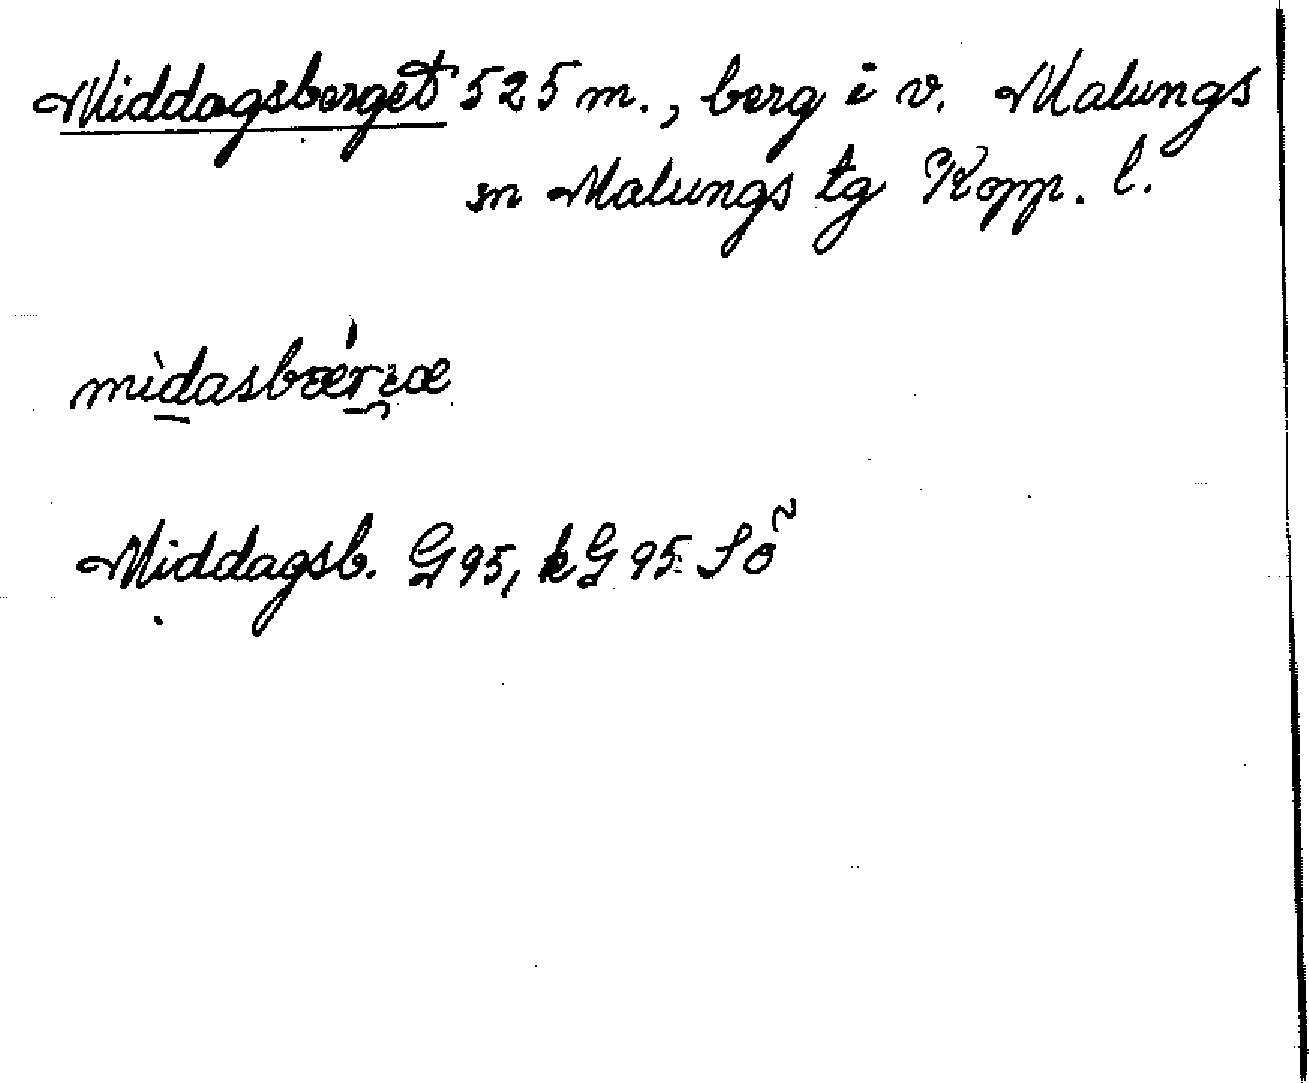 Middagsberget 525 m., berg i v. Malungs
sn Malungs tg Kopp. l.
mìdasbæ̀rjæ
Middagsb. G 95, kG 95 Sö